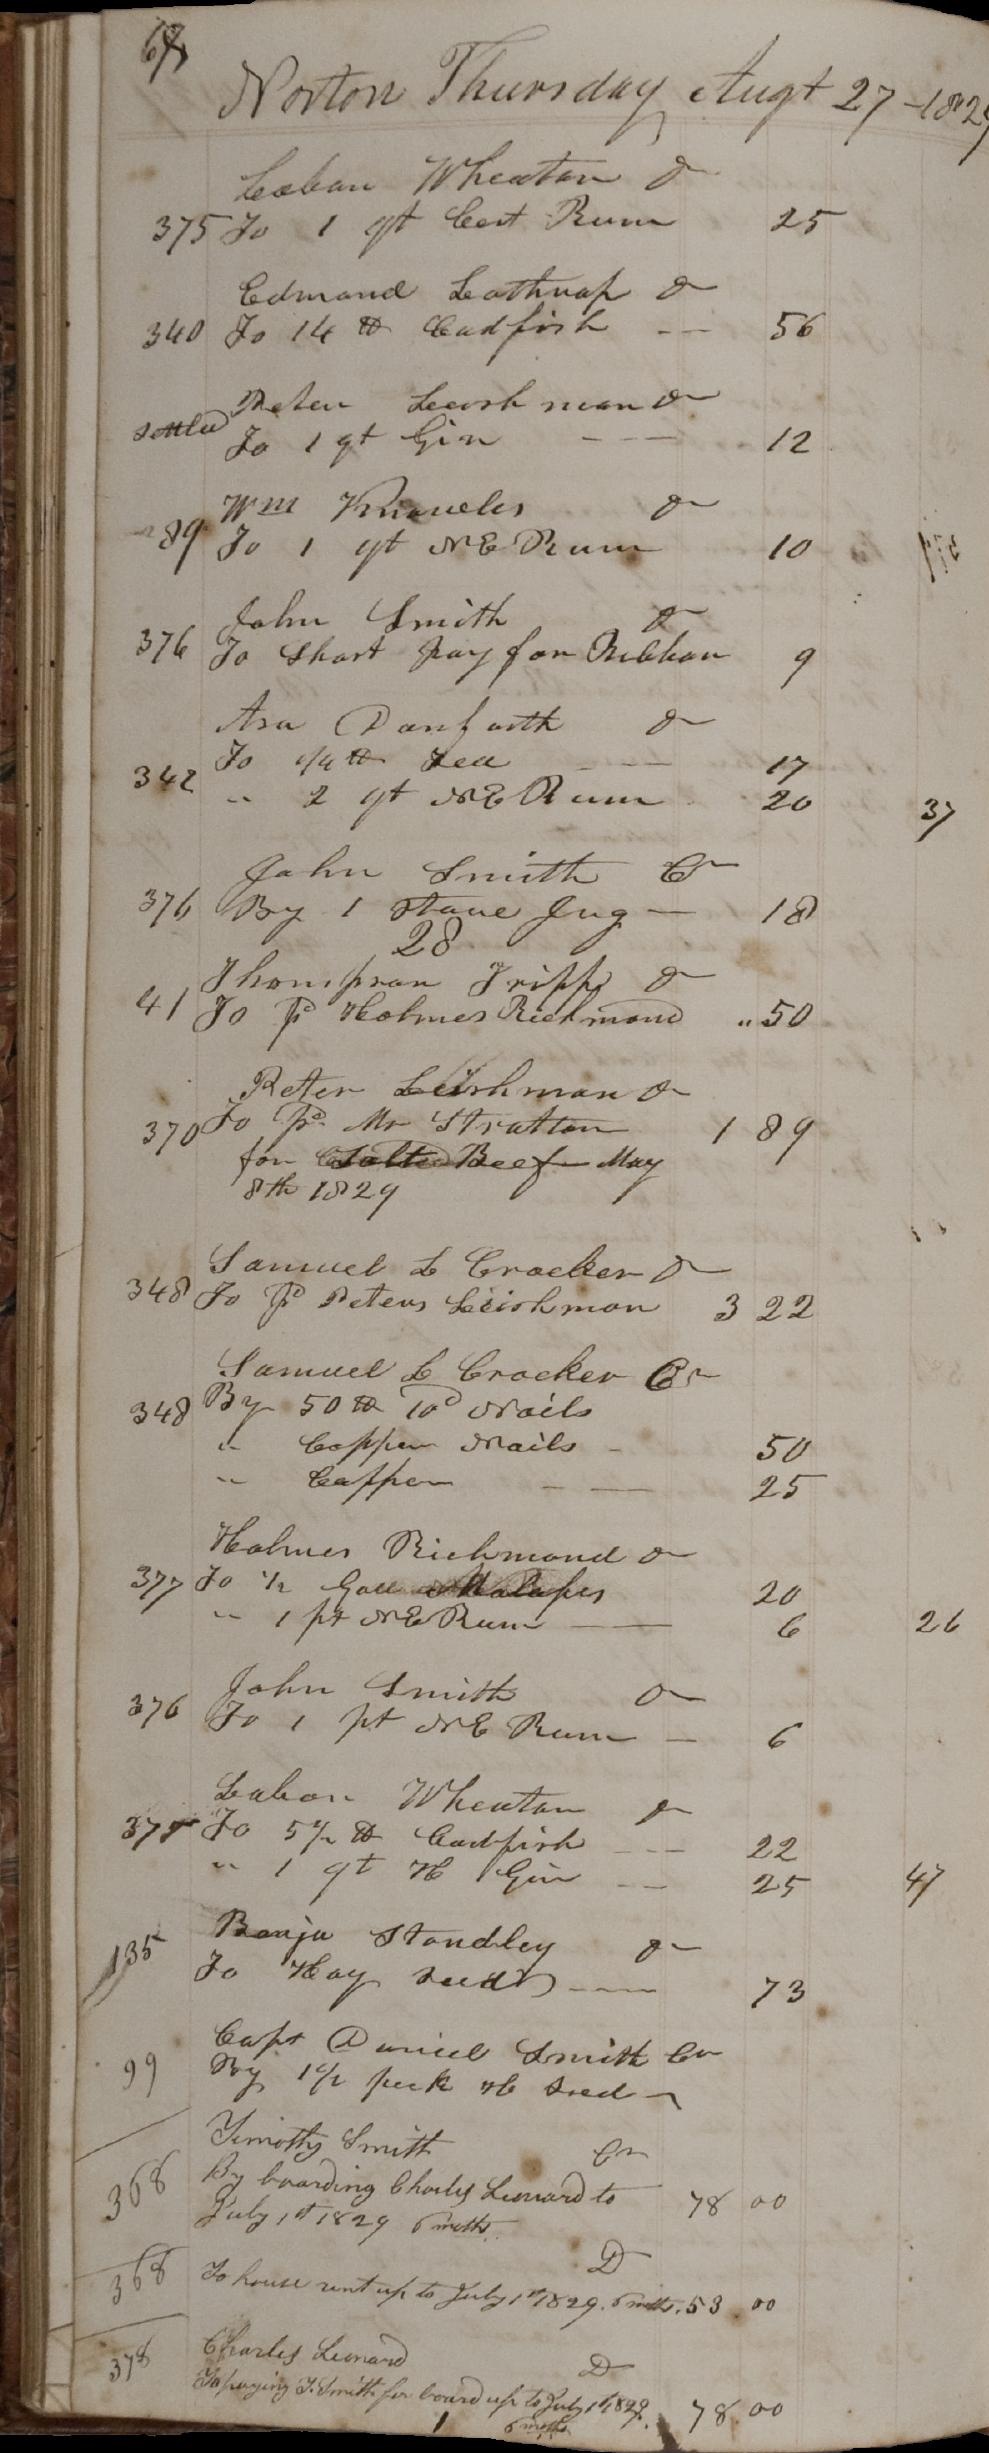 Norton Thursday Augt 27 - 1829
Laban Wheaton Dr
375 To 1 qt Cest Rum 25
Edmand Lathrap Dr
340 To 14 lb Cadfish -- 56
Peter Leeishman Dr
settled To 1 qt Gin --- 12
Wm Knaueles Dr
289 To 1 qt NE Rum 10
John Smith Dr
376 To Short pay for Ribban 9
Asa Danfarth Dr
To 1/4 lb Tea -- 17
342 " 2 qt NE Rum 20 37
John Smith Cr
376 By 1 Stane Jug - 18
28
Thompson Tripp Dr
41 To pd Holmes Richmond " 50
Peter Leishman Dr
370 To pd Mr Stratton 1 89
for Salted Beef May
8th 1829
Samuel L Crocker Dr
348 To pd Peters Leishman 3 22
Samuel L Crocker Cr
348 By 50 lb 10d Nails
" Copper Nails - 50
" Copper -- 25
Holmes Richmond Dr
377 To 1/2 Gall Malases 20
" 1 pt NE Rum -- 6 26
John Smith Dr
376 To 1 pt NE Rum - 6
Laban Wheaton Dr
375 To 5 1/2 lb Cadfish -- 22
" 1 qt H Gin -- 25 47
Benja Standley Dr
135 To Hay seed -- 73
Capt Daniel Smith Cr
99 By 1 1/2 peck H seed
Timothy Smith Cr
368 By boarding Charles Leonard to 78 00
July 1st 1829 6 moths.
D
368 To house rent up to July 1st 1829. 6 moths. 53 00
Charles Leonard D
378 To paying T. Smith for board up to July 1st 1829. 78 00
6 moths